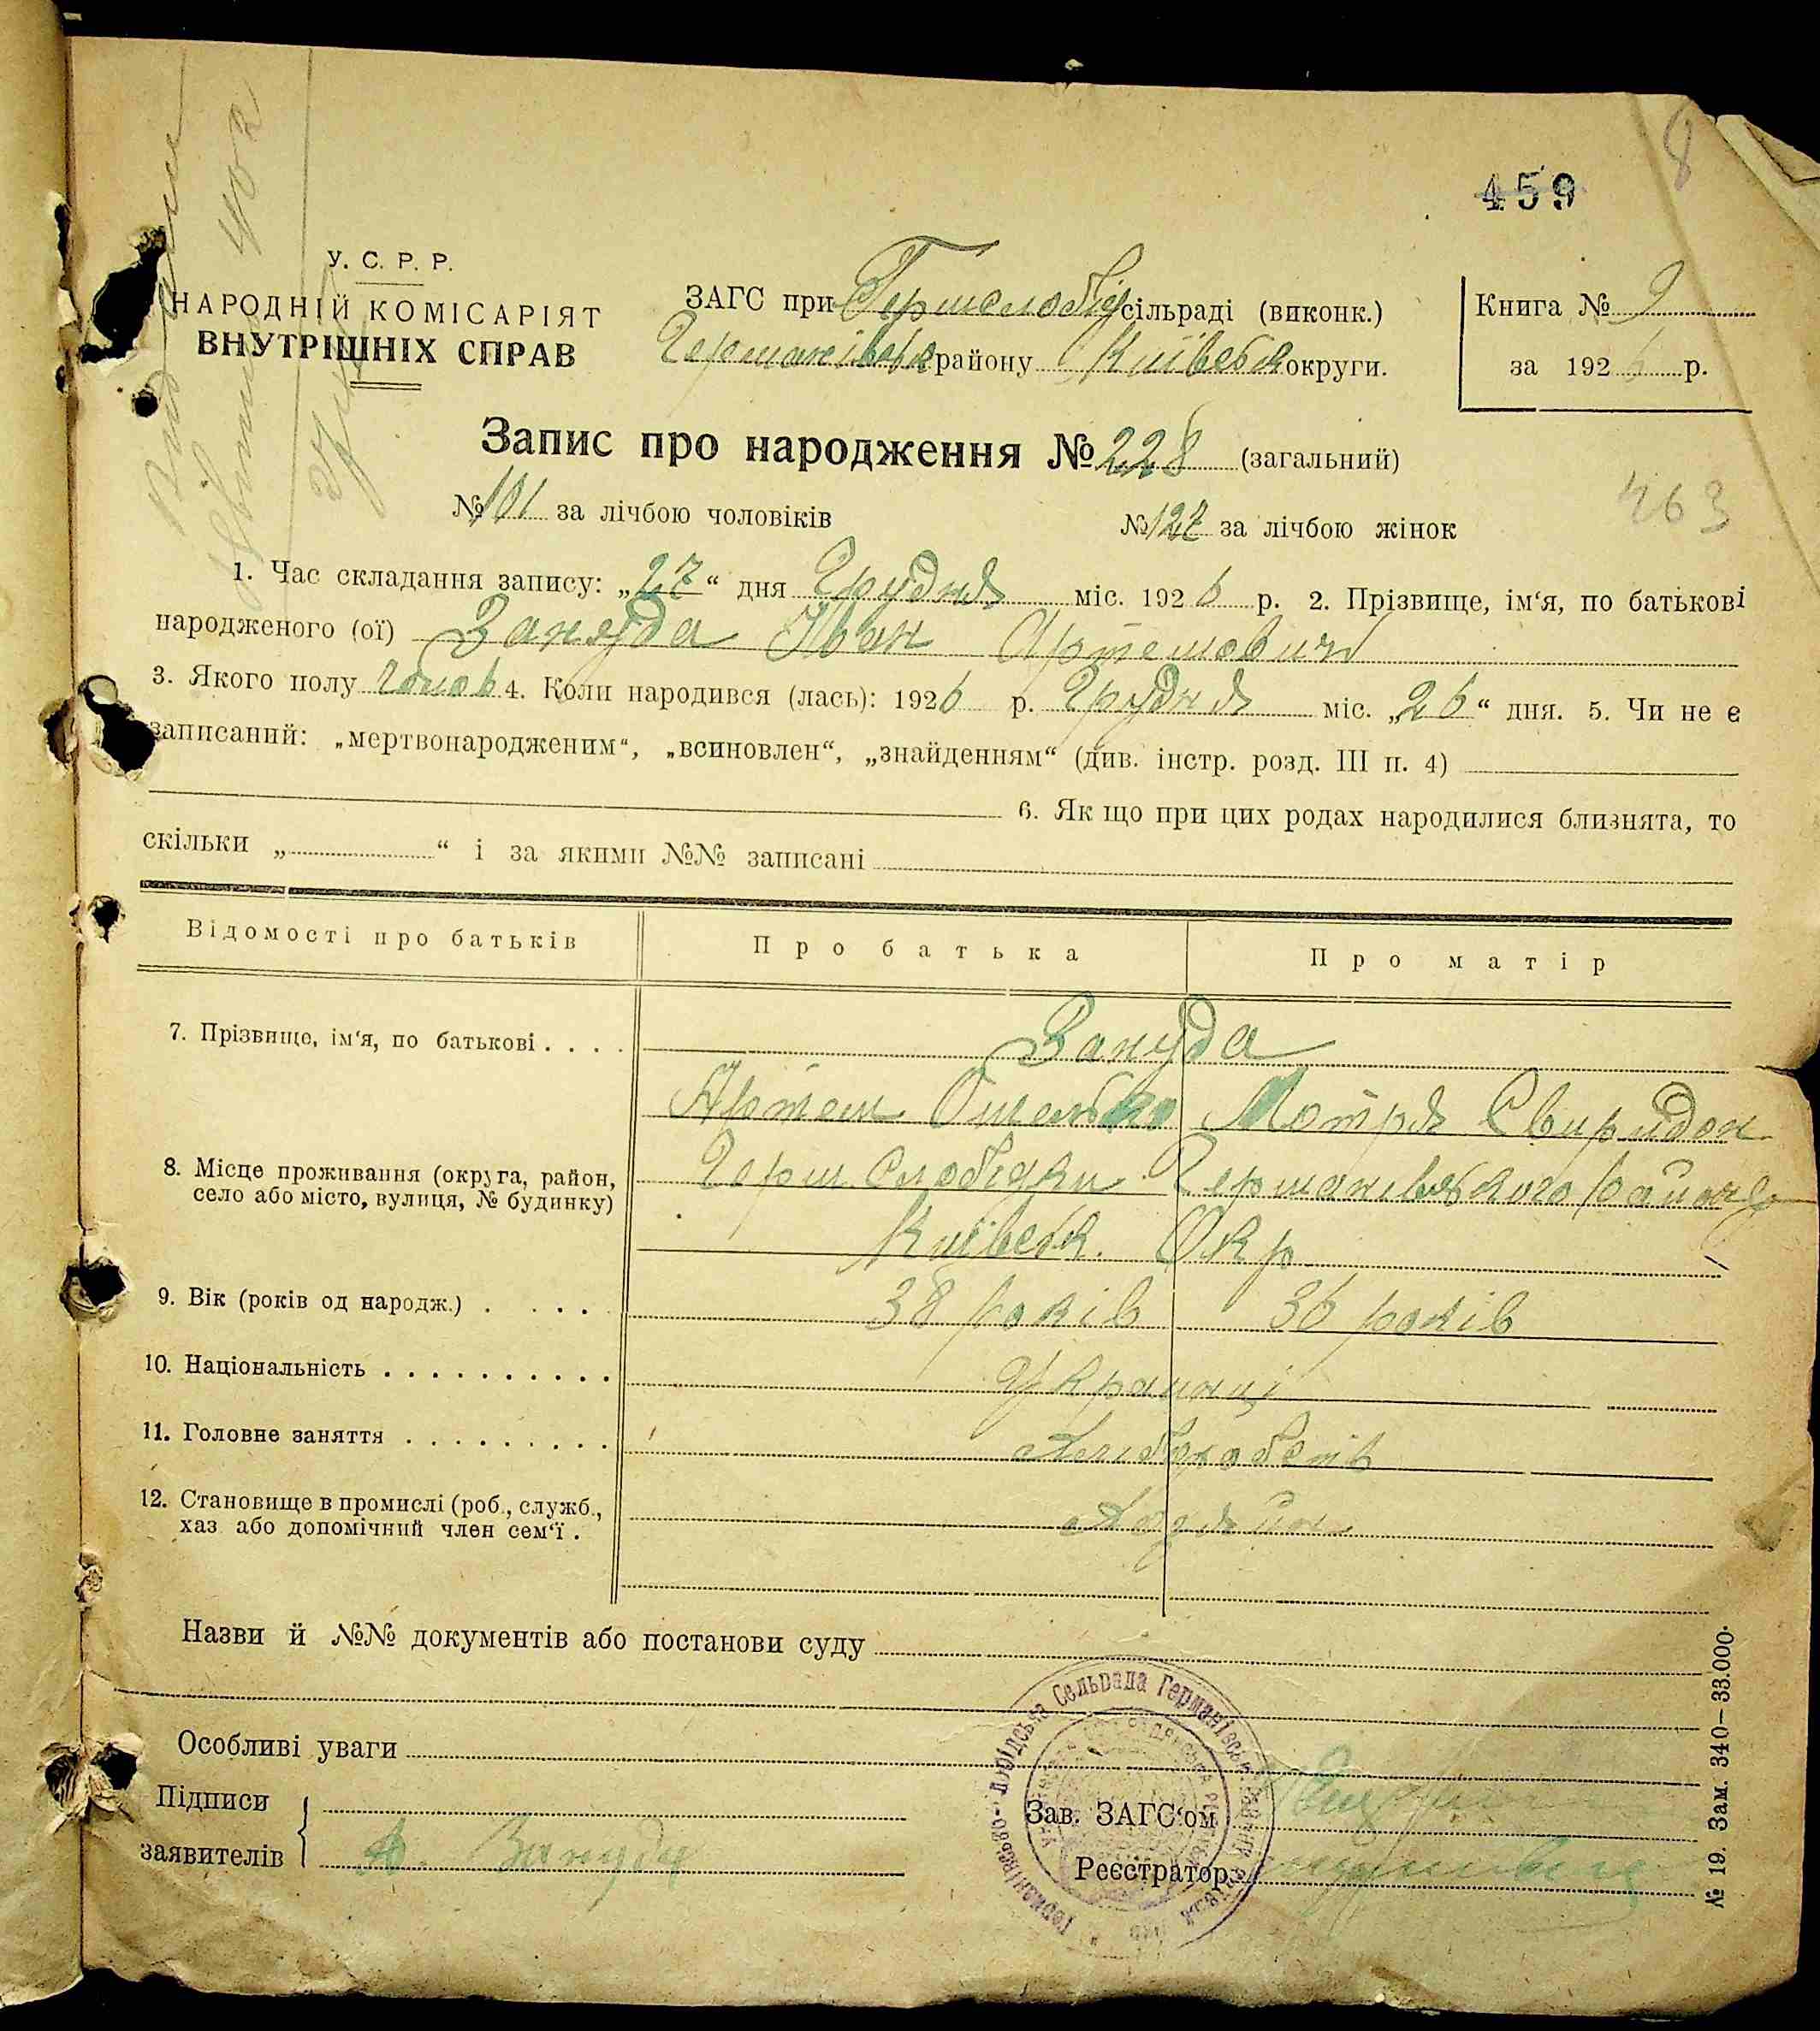 8
459
У. С. Р. Р.
НАРОДНІЙ КОМІСАРІЯТ
ВНУТРІШНІХ СПРАВ
ЗАГС при Гермслобід сільраді (виконк.)
Германівськ району Київськ округи.
Книга № 2
за 1926 р.
Запис про народження № 228 (загальний)
№ 101 за лічбою чоловіків
№ 127 за лічбою жінок
463
1. Час складання запису: „27“ дня Грудня міс. 1926 р. 2. Прізвище, ім‘я, по батькові
народженого (ої) Зануда Іван Артемович
3. Якого полу чолов 4. Коли народився (лась): 1926 р. Грудня міс. „26“ дня. 5. Чи не є
записаний: „мертвонародженим“, „всиновлен“, „знайденням“ (див. інстр. розд. III п. 4)
6. Як що при цих родах народилися близнята, то
скільки „ “ і за якими №№ записані
Відомості про батьків
Про батька
Про матір
7. Прізвище, ім‘я, по батькові . . . .
Зануда
Артем Омельк Мотря Свиридон
8. Місце проживання (округа, район,
село або місто, вулиця, № будинку)
Герм Слобідки Германівського району
Київськ. Окр
9. Вік (років од народж.) . . . .
38 років 36 років
10. Національність . . . . . . . . . .
Українці
11. Головне заняття . . . . . . . . .
Хліборобств
12. Становище в промислі (роб., служб.,
хаз або допомічний член сем‘ї .
Хозяїн
Назви й №№ документів або постанови суду
Особливі уваги
Підписи
заявителів
А. Зануда
Зав. ЗАГС‘ом
Реєстратор
Германівсько-Слобідська Сельрада Германівськ.
№ 19. Зам. 340–33.000.